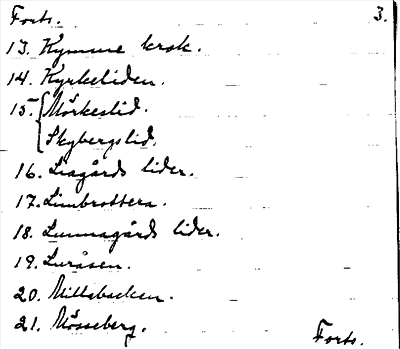 Forts. 3.
13. Kymme krok.
14. Kyrkeliden.
15. Mörkeslid.
Skybergslid.
16. Liagårds lider.
17. Limbrottera.
18. Lunnagårds lider.
19. Luråsen.
20. Millabacken.
21. Mösseberg.
Forts.